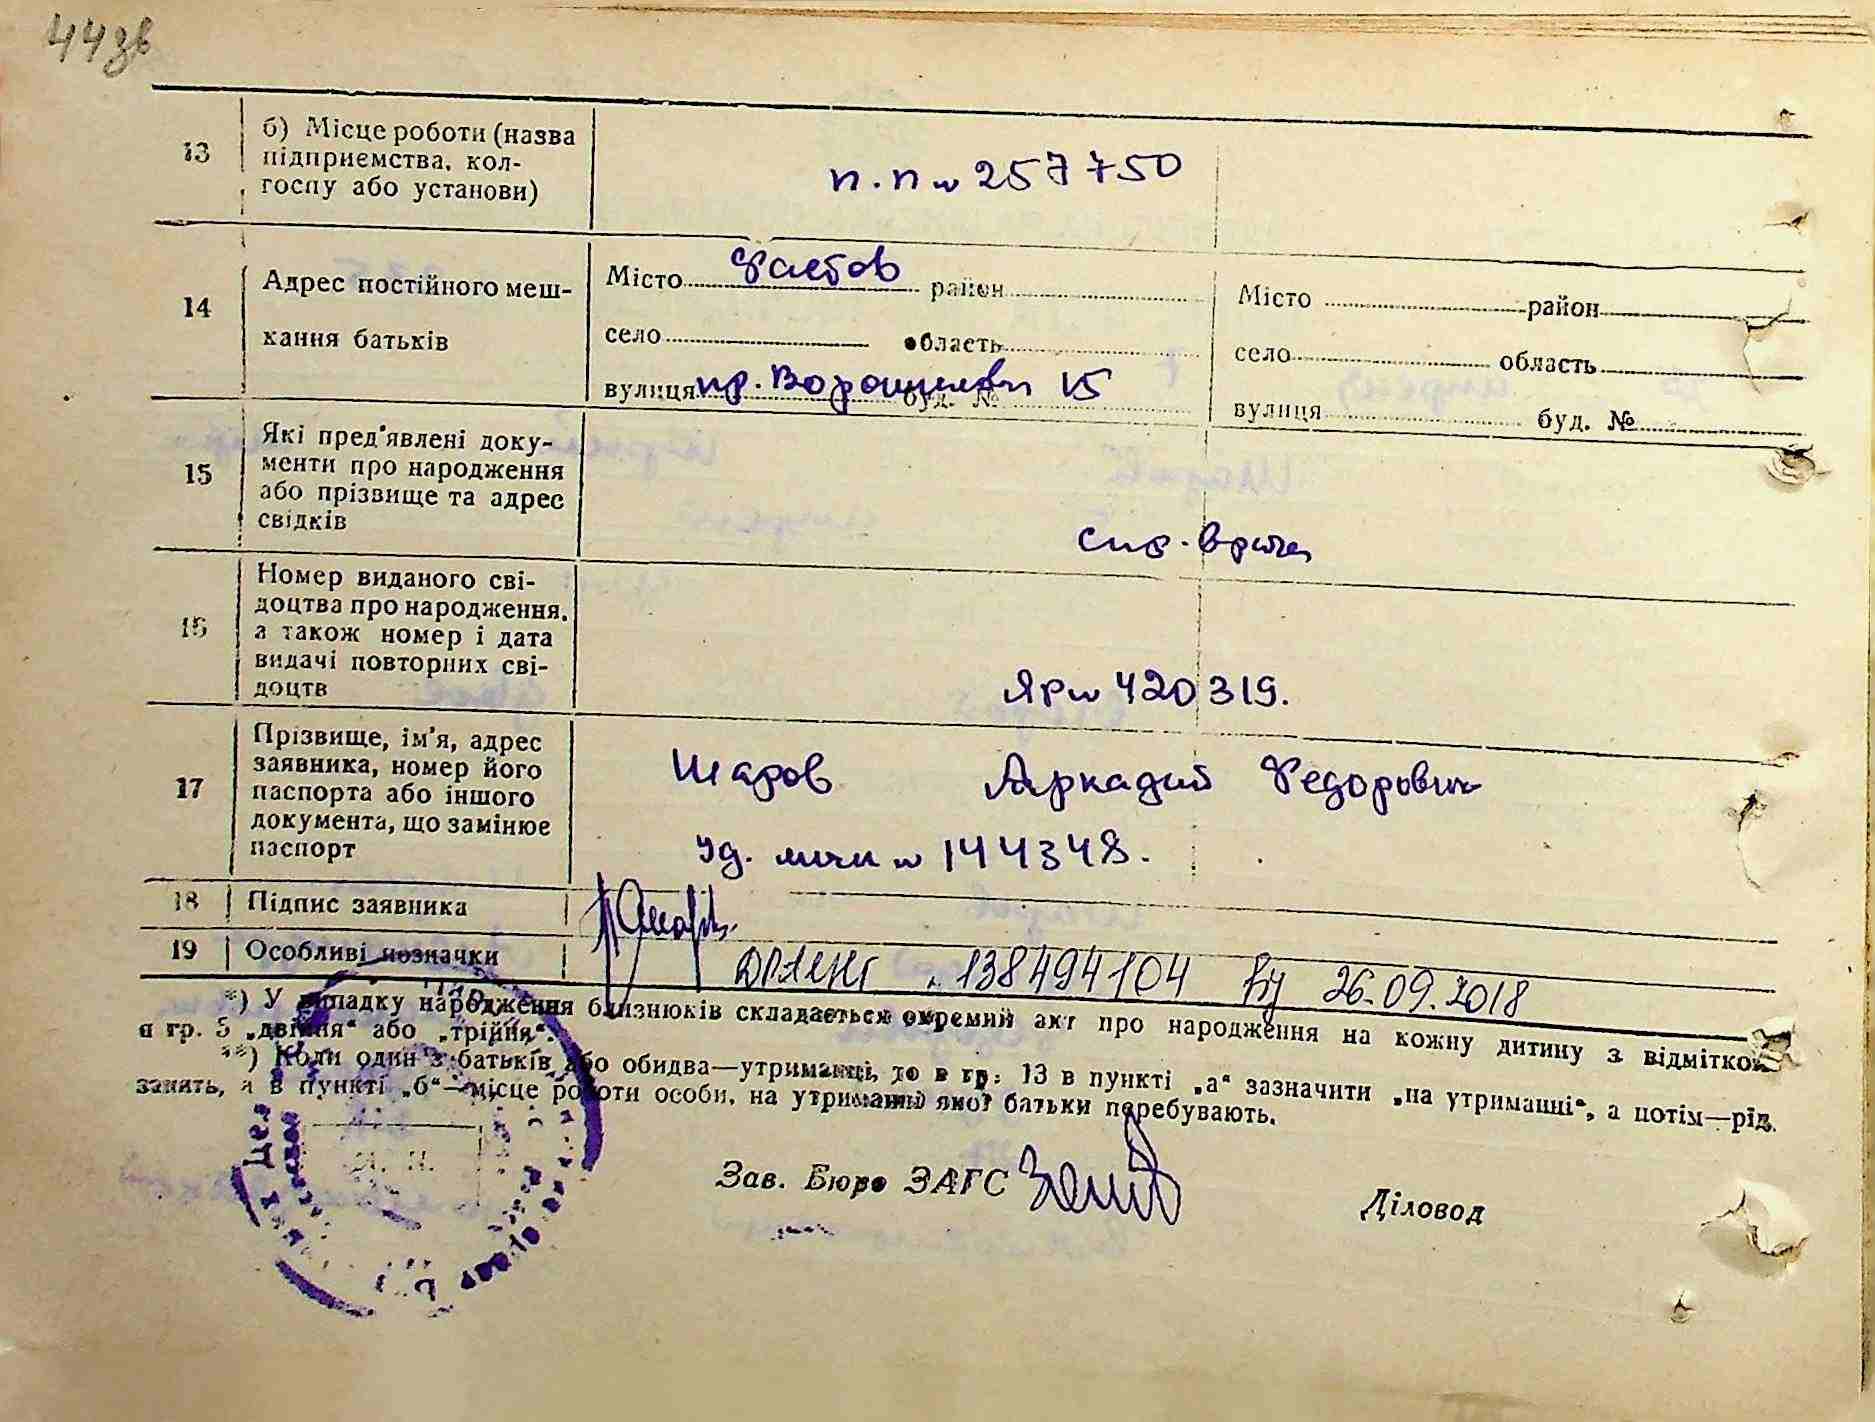 44зв
13 б) Місце роботи (назва
підприємства, кол-
госпу або установи)
п.п № 257750
14 Адрес постійного меш-
кання батьків
Місто Фастов район
село область
вулиця пр. Ворошилова 15 буд. №
Місто район
село область
вулиця буд. №
15 Які пред'явлені доку-
менти про народження
або прізвище та адрес
свідків
спр. врача
16 Номер виданого сві-
доцтва про народження,
а також номер і дата
видачі повторних сві-
доцтв
ЯР № 420319.
17 Прізвище, ім'я, адрес
заявника, номер його
паспорта або іншого
документа, що замінює
паспорт
Шаров Аркадий Федорович
Уд. личн № 144348.
18 Підпис заявника
19 Особливі позначки
ДРАЦСГ 138494104 від 26.09.2018
*) У випадку народження близнюків складається окремий акт про народження на кожну дитину з відміткою
в гр. 5 „двійня“ або „трійня“.
**) Коли один з батьків або обидва—утриманці, то в гр. 13 в пункті „а“ зазначити „на утриманні“, а потім—рід
занять, а в пункті „б“—місце роботи особи, на утриманні якої батьки перебувають.
Зав. Бюро ЗАГС
Діловод